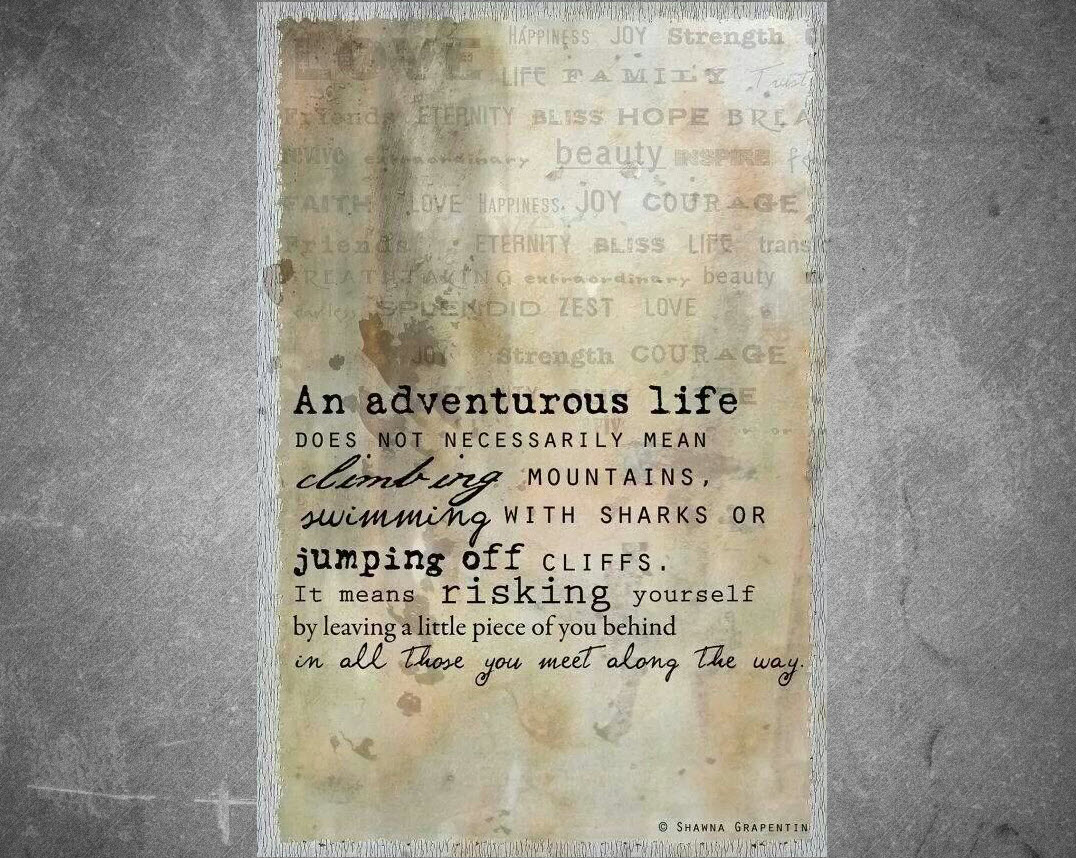 LOVE HAPPINESS JOY Strength
LIFE FAMILY Trust
Friends ETERNITY BLISS HOPE BREA
revive extraordinary beauty INSPIRE
FAITH LOVE HAPPINESS. JOY COURAGE
Friends ETERNITY BLISS LIFE trans
BREATHTAKING extraordinary beauty
endless SPLENDID ZEST LOVE
JOY Strength COURAGE
An adventurous life
DOES NOT NECESSARILY MEAN
climbing MOUNTAINS,
swimming WITH SHARKS OR
jumping off CLIFFS.
It means risking yourself
by leaving a little piece of you behind
in all those you meet along the way.
© SHAWNA GRAPENTIN